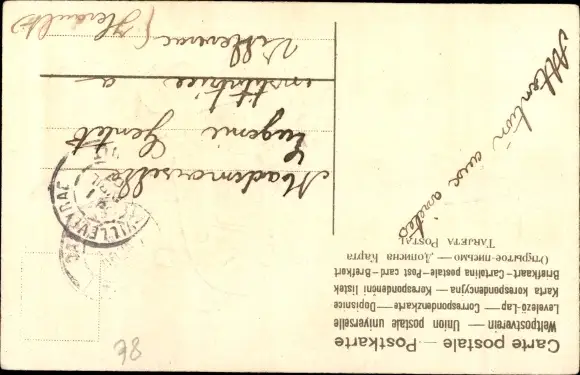 Carte postale — Postkarte
Weltpostverein — Union postale universelle
Levelező-Lap — Correspondenzkarte — Dopisnice
Karta korespondencyjna — Korespondenční listek
Briefkaart — Cartolina postale — Post card — Brefkort
Открытое письмо — Дописна Карта
TARJETA POSTAL
Attention aux arêtes
Mademoiselle
Eugénie Gentet
institutrice à
Villeveyrac
(Hérault)
VILLEVEYRAC
78